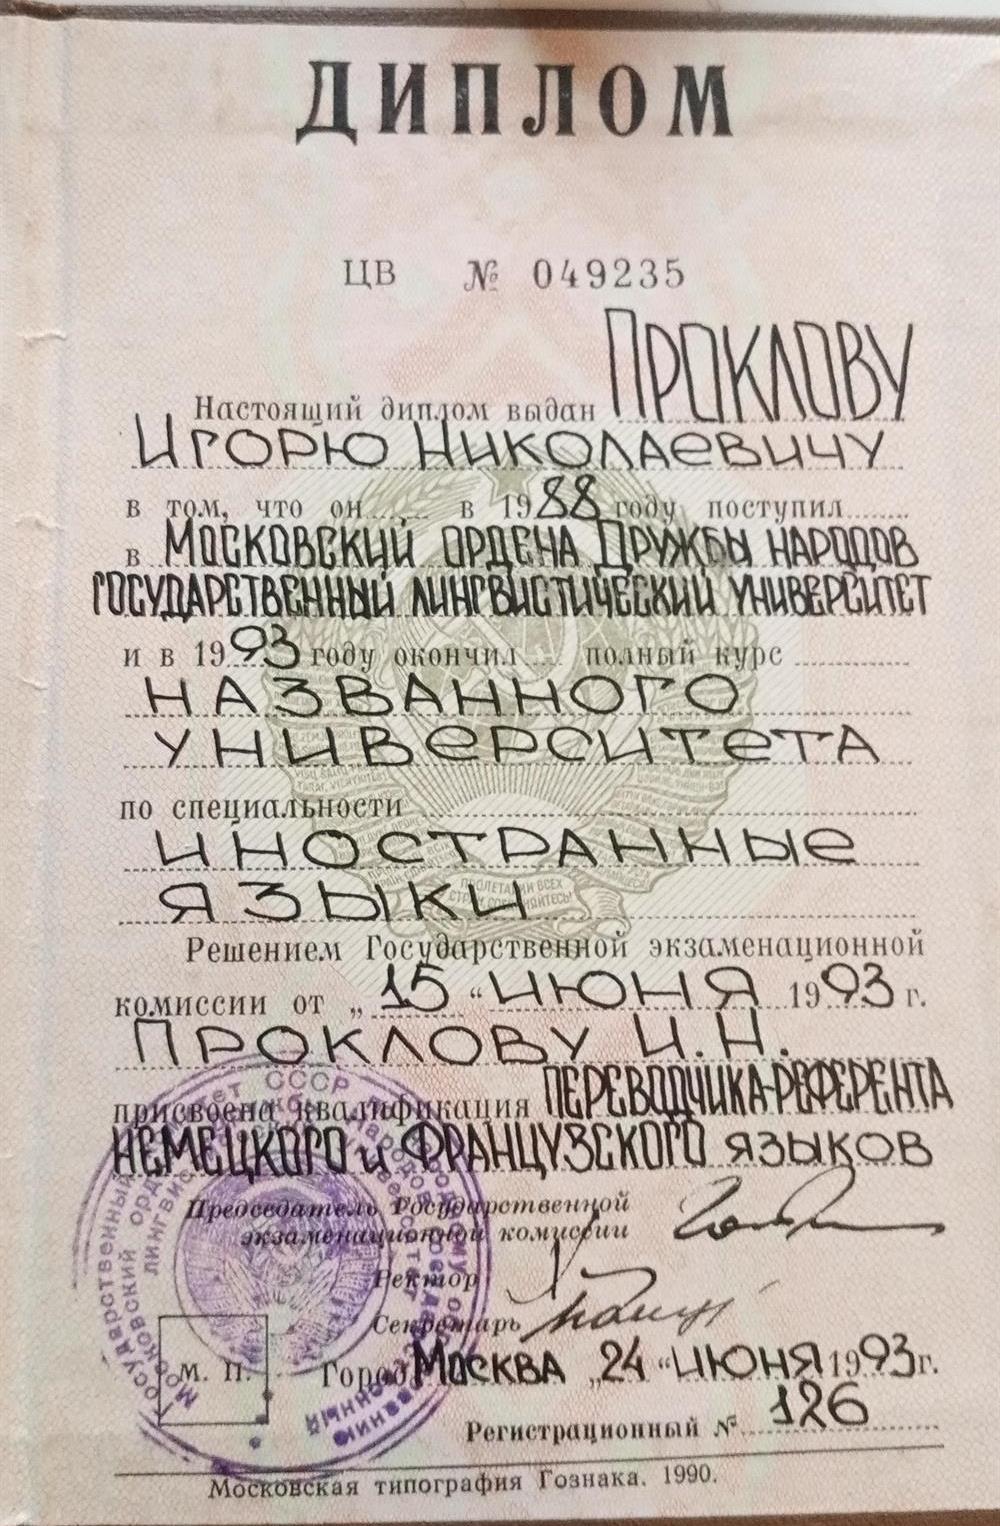 ДИПЛОМ
ЦВ № 049235
Настоящий диплом выдан ПРОКЛОВУ
ИГОРЮ НИКОЛАЕВИЧУ
в том, что он в 1988 году поступил
в МОСКОВСКИЙ ОРДЕНА ДРУЖБЫ НАРОДОВ
ГОСУДАРСТВЕННЫЙ ЛИНГВИСТИЧЕСКИЙ УНИВЕРСИТЕТ
и в 1993 году окончил полный курс
НАЗВАННОГО
УНИВЕРСИТЕТА
по специальности
ИНОСТРАННЫЕ
ЯЗЫКИ
Решением Государственной экзаменационной
комиссии от „15“ ИЮНЯ 1993 г.
ПРОКЛОВУ И.Н.
присвоена квалификация ПЕРЕВОДЧИКА-РЕФЕРЕНТА
НЕМЕЦКОГО И ФРАНЦУЗСКОГО ЯЗЫКОВ
Председатель Государственной
экзаменационной комиссии
Ректор
Секретарь
М. П. Город МОСКВА „24“ ИЮНЯ 1993 г.
Регистрационный № 126
Московская типография Гознака. 1990.